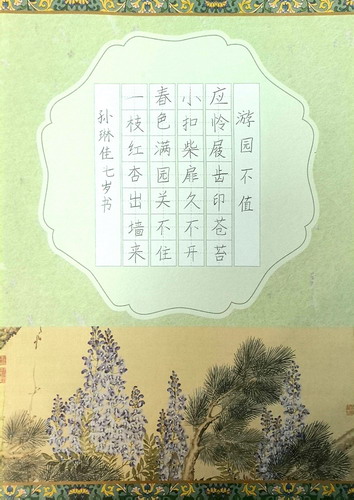 游园不值
应怜屐齿印苍苔
小扣柴扉久不开
春色满园关不住
一枝红杏出墙来
孙琳佳七岁书